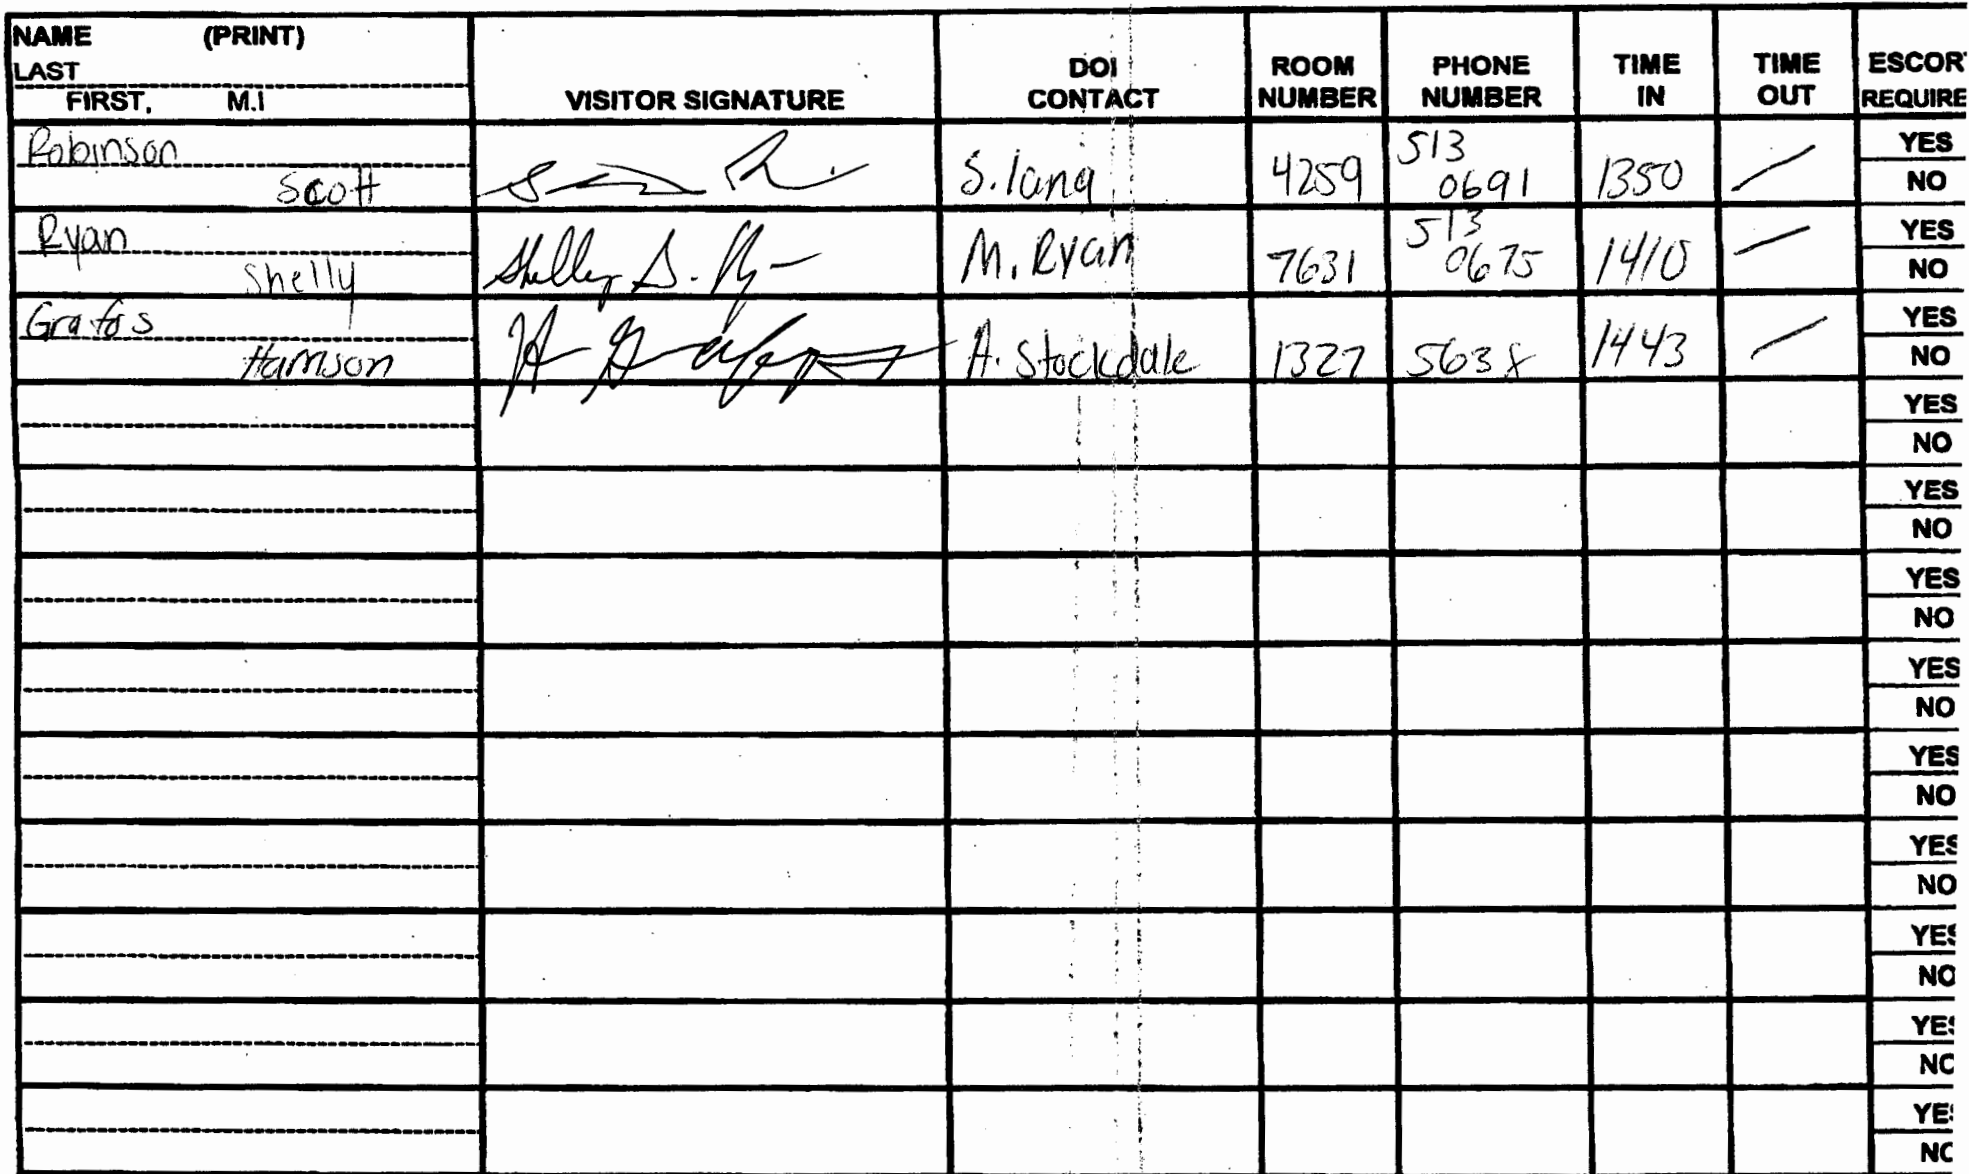 NAME (PRINT)
LAST
FIRST, M.I
VISITOR SIGNATURE
DOI
CONTACT
ROOM
NUMBER
PHONE
NUMBER
TIME
IN
TIME
OUT
ESCOR
REQUIRE
Robinson
Scott
S. lang
4259
513
0691
1350
YES
NO
Ryan
Shelly
Shelly S. Ryan
M. Ryan
7631
513
0675
1410
YES
NO
Grafos
Harrison
A. Stockdale
1327
5638
1443
YES
NO
YES
NO
YES
NO
YES
NO
YES
NO
YES
NO
YES
NO
YES
NO
YES
NO
YES
NO